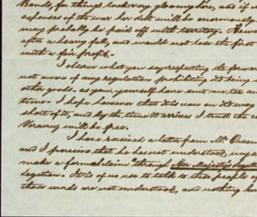 Bonds, for things look very gloomy here, and if
expenses of the war her debt will be enormously
may probably be paid off with territory. Howev
after a heavy fall, and would not lose the first
with a fair profit.
I observe what you say respecting the
not aware of any regulations prohibiting its being
other goods. as you yourself have sent me tea an
time. I hope however that it is now on its way
short of it, and by the time it arrives I trust the
Veracruz will be free.
I have received a letter from Mr.
and I perceive that he has not understood, or
make a formal claim "through Her Majesty's
Legation. It is of no use to talk to these people of
these words are not understood, and nothing but